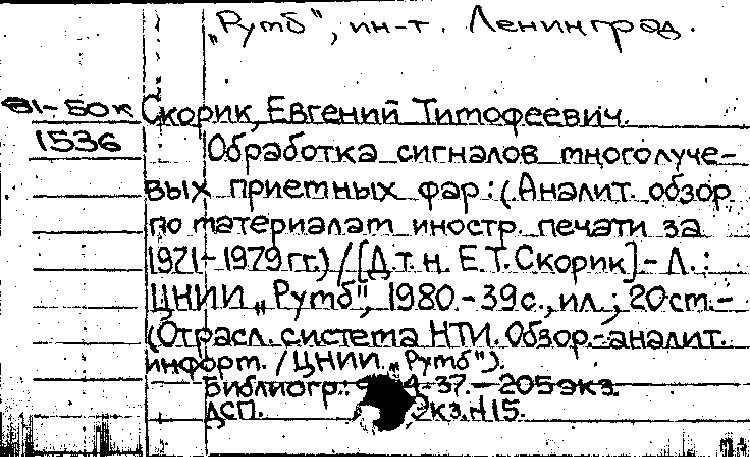 „Румб", ин-т. Ленинград.
81-50к Скорик, Евгений Тимофеевич.
1536 Обработка сигналов многолуче-
вых приемных фар: (Аналит. обзор
по материалам иностр. печати за
1971-1979 гг.) / [Д.т.н. Е.Т. Скорик] - Л.:
ЦНИИ „Румб", 1980. - 39 с., ил.; 20 см. -
(Отрасл. система НТИ. Обзор.-аналит.
информ. / ЦНИИ „Румб").
Библиогр.: 37. - 205 экз.
ДСП. Экз. N 15.